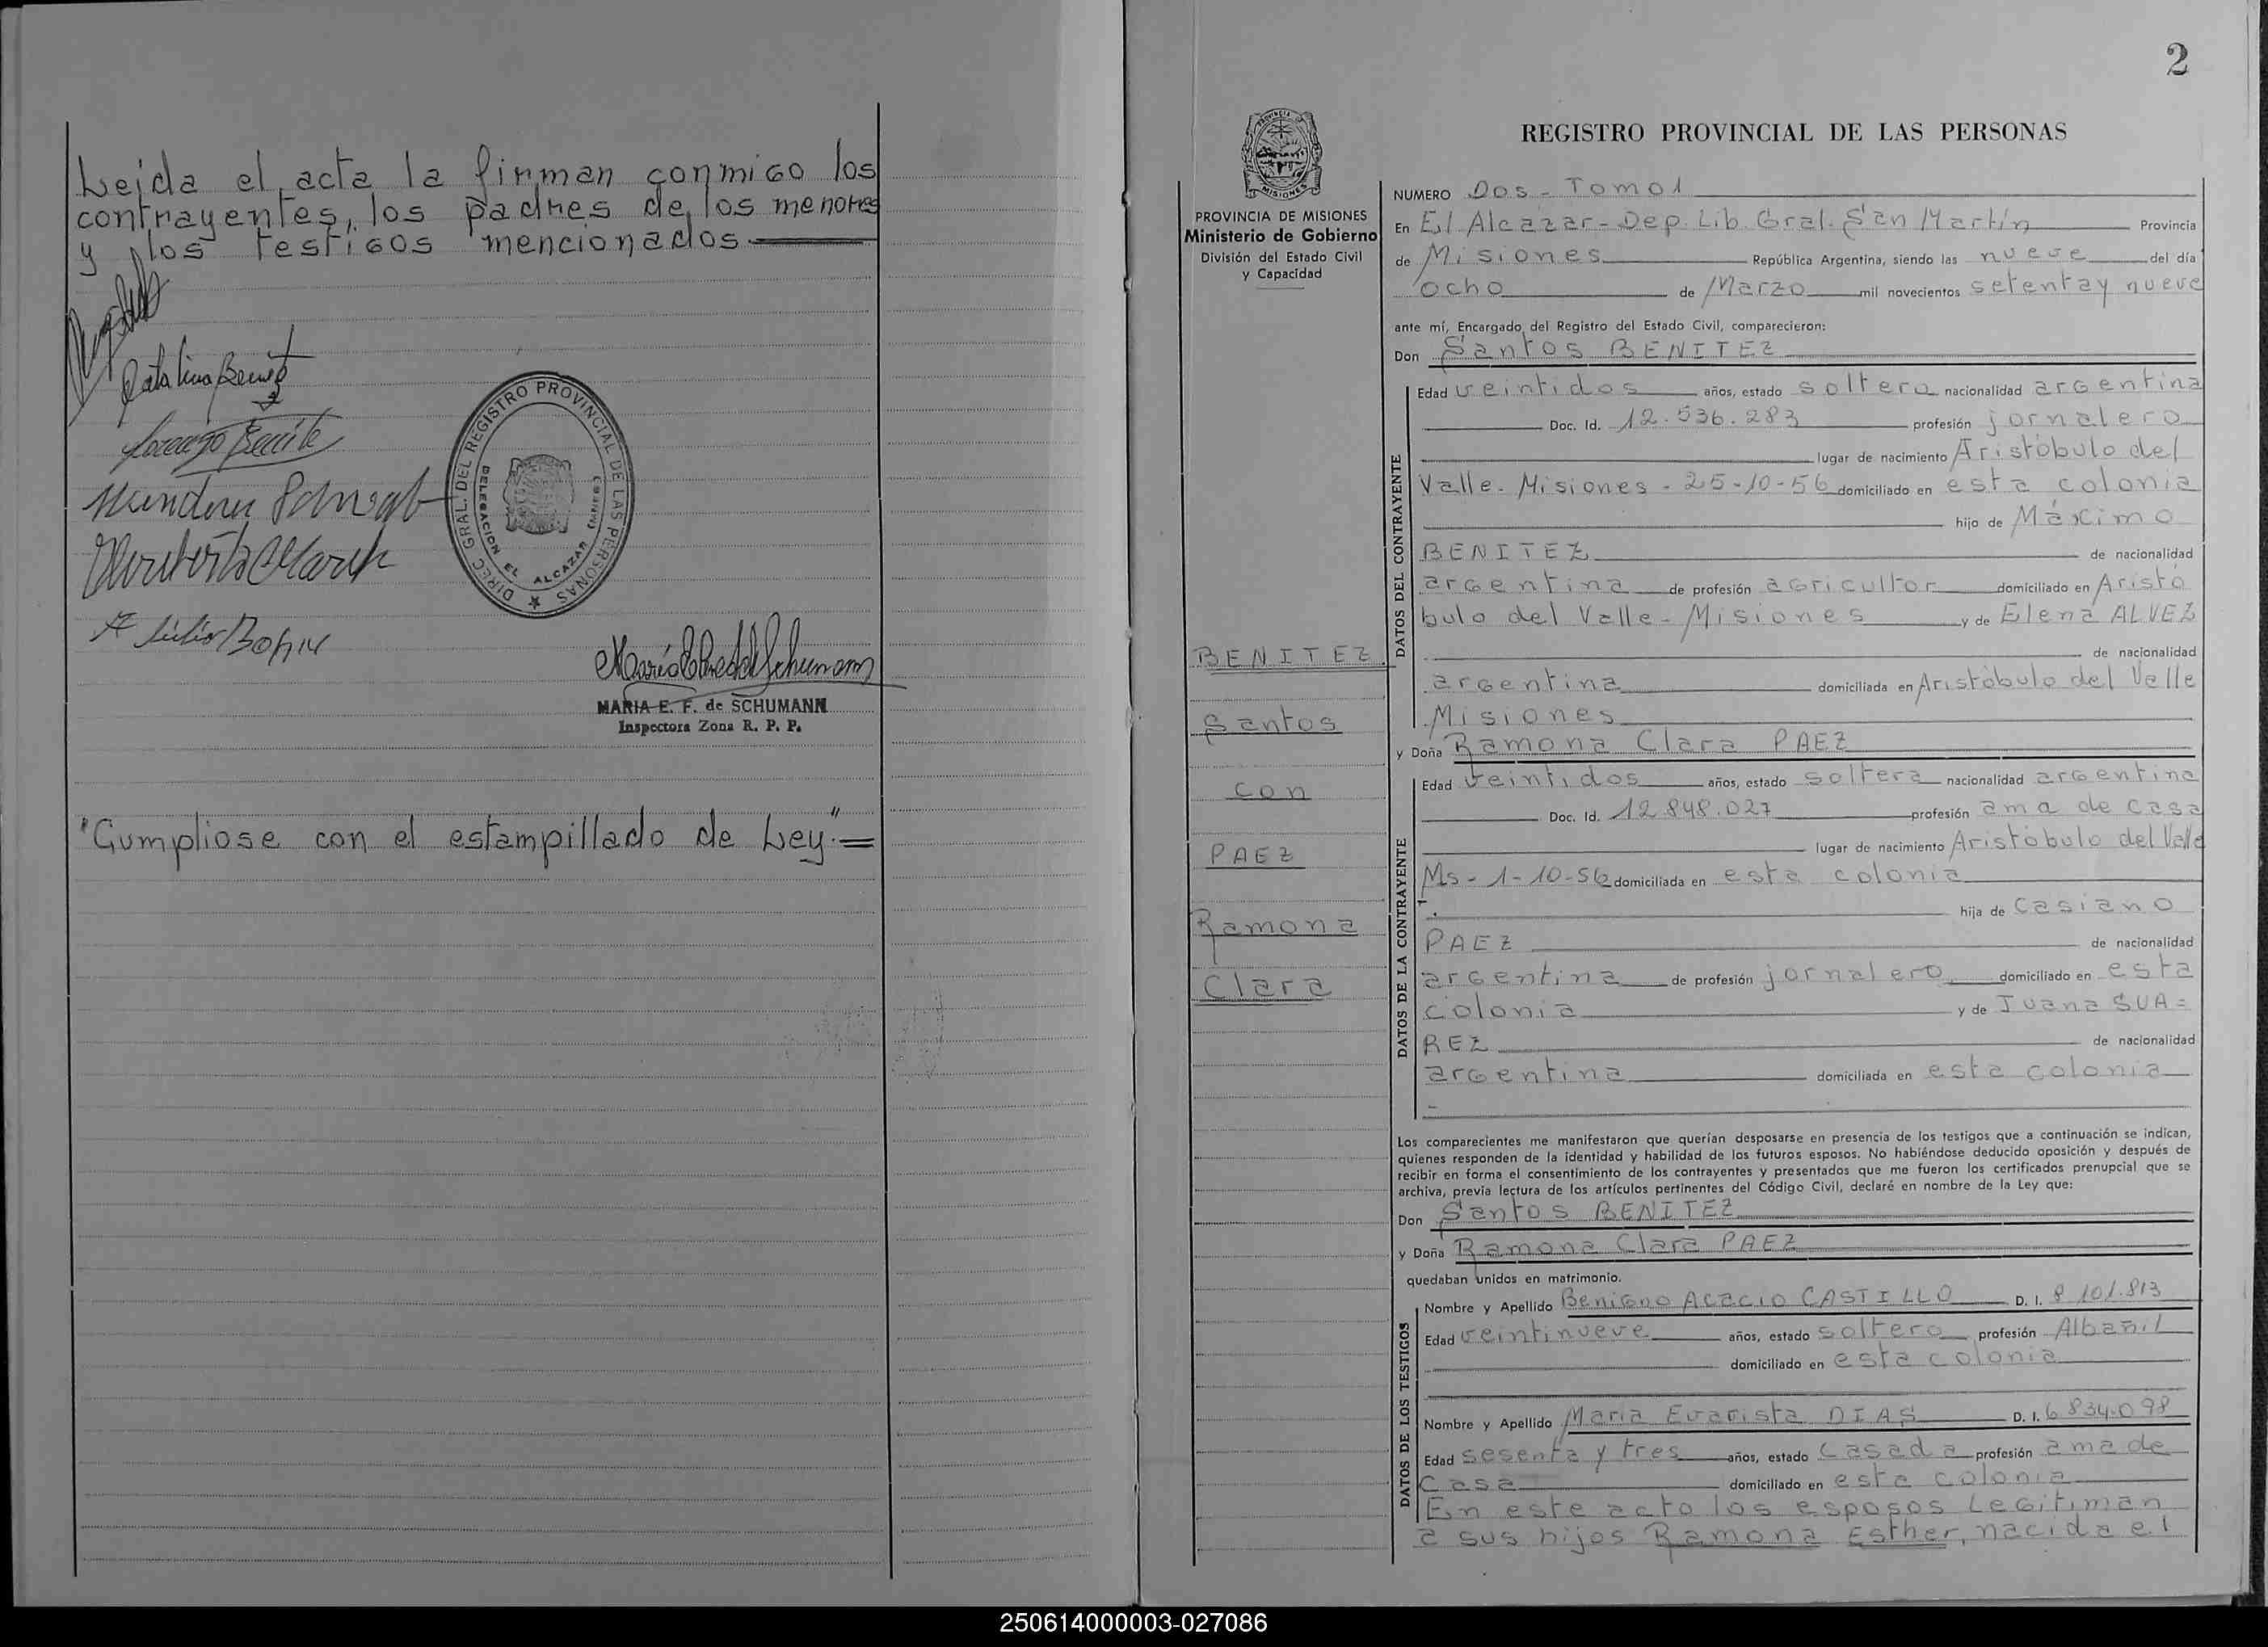 Leida el acta la firman conmigo los
contrayentes, los padres de los menores
y los testigos mencionados
Catalina Benitez
Lorenzo Benite
DIREC. GRAL. DEL REGISTRO PROVINCIAL DE LAS PERSONAS
DELEGACION EL ALCAZAR (Mnes)
MARIA E. F. de SCHUMANN
Inspectora Zona R. P. P.
"Cumpliose con el estampillado de Ley".=
2
PROVINCIA MISIONES
PROVINCIA DE MISIONES
Ministerio de Gobierno
División del Estado Civil
y Capacidad
BENITEZ
Santos
con
PAEZ
Ramona
Clara
REGISTRO PROVINCIAL DE LAS PERSONAS
NUMERO Dos - Tomo 1
En El Alcazar - Dep. Lib. Gral. San Martín Provincia
de Misiones República Argentina, siendo las nueve del día
ocho de Marzo mil novecientos setenta y nueve
ante mí, Encargado del Registro del Estado Civil, comparecieron:
Don Santos BENITEZ
DATOS DEL CONTRAYENTE
Edad veintidos años, estado soltero nacionalidad argentina
Doc. Id. 12.536.283 profesión jornalero
lugar de nacimiento Aristóbulo del
Valle. Misiones - 25-10-56 domiciliado en esta colonia
hijo de Máximo
BENITEZ de nacionalidad
argentina de profesión agricultor domiciliado en Aristó
bulo del Valle - Misiones y de Elena ALVEZ
de nacionalidad
argentina domiciliada en Aristóbulo del Valle
Misiones
y Doña Ramona Clara PAEZ
DATOS DE LA CONTRAYENTE
Edad veintidos años, estado soltera nacionalidad argentina
Doc. Id. 12.848.027 profesión ama de casa
lugar de nacimiento Aristóbulo del Valle
Ms - 1-10-56 domiciliada en esta colonia
hija de Casiano
PAEZ de nacionalidad
argentina de profesión jornalero domiciliado en esta
colonia y de Juana SUA=
REZ de nacionalidad
argentina domiciliada en esta colonia
Los comparecientes me manifestaron que querían desposarse en presencia de los testigos que a continuación se indican,
quienes responden de la identidad y habilidad de los futuros esposos. No habiéndose deducido oposición y después de
recibir en forma el consentimiento de los contrayentes y presentados que me fueron los certificados prenupcial que se
archiva, previa lectura de los artículos pertinentes del Código Civil, declaré en nombre de la Ley que:
Don Santos BENITEZ
y Doña Ramona Clara PAEZ
quedaban unidos en matrimonio.
DATOS DE LOS TESTIGOS
Nombre y Apellido Benigno Acacio CASTILLO D. I. 8.101.813
Edad veintinueve años, estado soltero profesión Albañil
domiciliado en esta colonia
Nombre y Apellido Maria Evarista DIAS D. I. 6.834.098
Edad sesenta y tres años, estado casada profesión ama de
casa domiciliado en esta colonia
En este acto los esposos Legitiman
a sus hijos Ramona Esther, nacida el
250614000003-027086